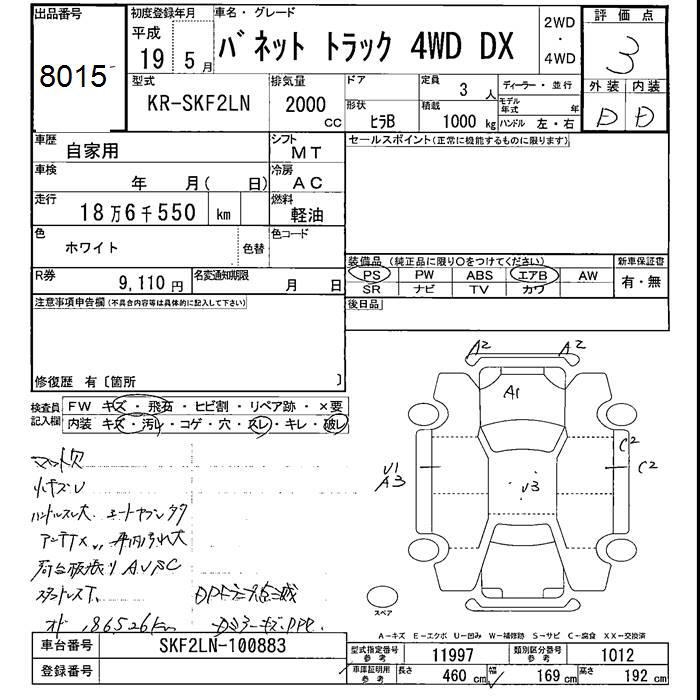 出品番号
8015
初度登録年月
平成
19 5月
車名・グレード
バネット トラック 4WD DX
2WD
・
4WD
評価点
3
型式
KR-SKF2LN
排気量
2000
cc
ドア
定員
3人
ディーラー・並行
形状
ヒラB
積載
1000kg
モデル年式 年
ハンドル 左・右
外装 内装
D D
車歴
自家用
シフト
MT
車検
年 月( 日)
冷房
AC
走行
18万6千550 km
燃料
軽油
色
ホワイト
色替
色コード
R券
9,110円
名変通知期限
月 日
セールスポイント(正常に機能するものに限ります)
装備品(純正品に限り○をつけてください)
新車保証書
PS PW ABS エアB AW
SR ナビ TV カワ
有・無
後日品
注意事項申告欄(不具合内容等は具体的に記入して下さい)
修復歴 有〔箇所 〕
検査員記入欄
FW キズ・飛石・ヒビ割・リペア跡・×要
内装 キズ・汚レ・コゲ・穴・スレ・キレ・破レ
A2 A2
A1
C2
C2
U1
A3
U3
小キズU
ハンドルスレ大
荷台板張り A.U.S.C
スタッドレスT.
オド 186526km
スペア
A-キズ E-エクボ U-凹み W-補修跡 S-サビ C-腐食 XX-交換済
車台番号
SKF2LN-100883
登録番号
型式指定番号
参考
11997
類別区分番号
参考
1012
車庫証明用
参考
長さ
460 cm
幅
169 cm
高さ
192 cm